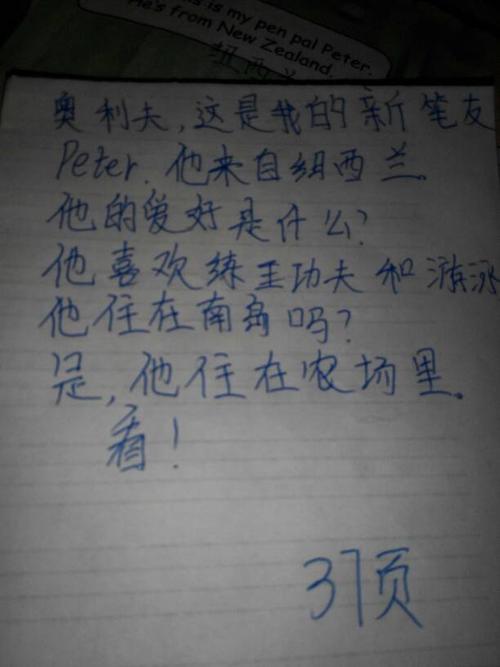 is is my pen pal Peter.
He's from New Zealand.
纽西兰
奥利夫,这是我的新笔友
Peter.他来自纽西兰。
他的爱好是什么?
他喜欢练王功夫和游泳
他住在南岛吗?
是,他住在农场里。
看!
37页